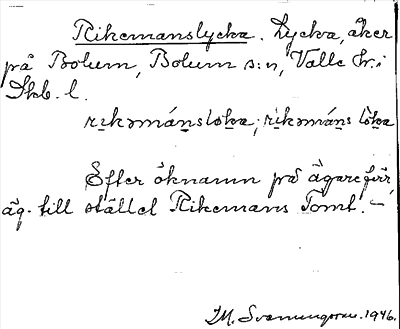 Rikemanslycka. Lycka, åker
på Bolum, Bolum s:n, Valle hr. i
Skb. l.
rikəmánsløka; rikəmáns løka
Efter öknamn på ägare förr,
äg. till stället Rikemans Tomt. –
I.M. Svenungsson. 1946.